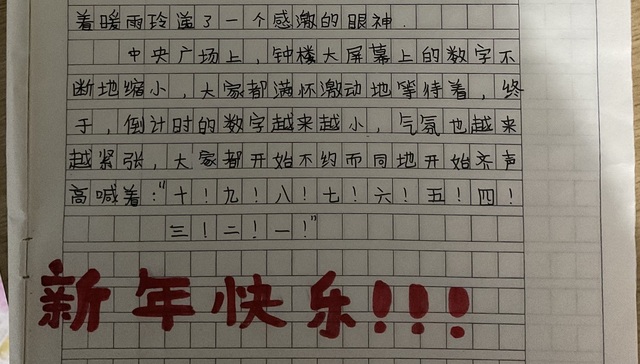 着暖雨玲递了一个感激的眼神.
中央广场上，钟楼大屏幕上的数字不
断地缩小，大家都满怀激动地等待着，终
于，倒计时的数字越来越小，气氛也越来
越紧张，大家都开始不约而同地开始齐声
高喊着："十！九！八！七！六！五！四！
三！二！一！"
新年快乐!!!